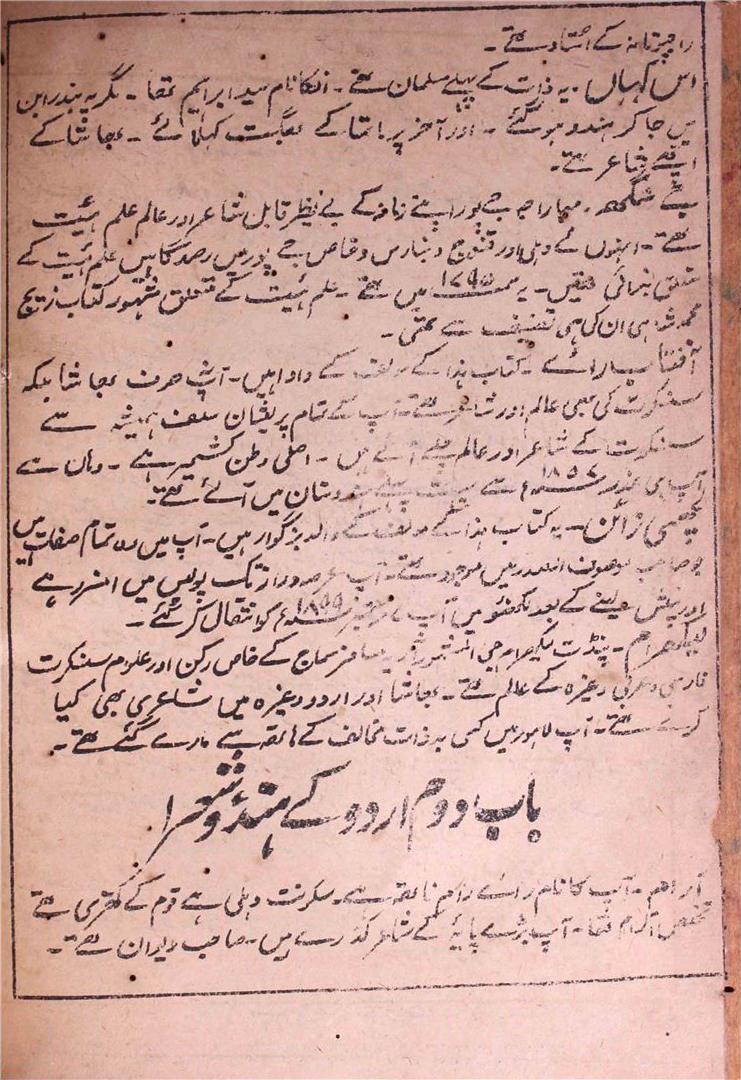 راجپوتانہ کے استاد تھے۔
اس کہاں۔ یہ ذات کے پہلے مسلمان تھے۔ انکا نام سید ابراہیم تھا۔ مگر یہ بندرابن
میں جا کر ہندو ہو گئے۔ اور آخر پرماتما کے بھگت کہلائے۔ بھاشا کے
اچھے شاعر تھے۔
جے سنگھ۔ مہاراجہ جے پور اپنے زمانہ کے بے نظیر قابل شاعر اور عالم علم ہیئت
تھے۔ انہوں نے دہلی اور قنوج و بنارس و خاص جے پور میں رصد گاہیں علم ہیئت کے
متعلق بنوائی تھیں۔ یہ میں تھے۔ علم ہیئت کے متعلق مشہور کتاب زیچ
محمد شاہی ان کی ہی تصنیف سے تھی۔
آفتاب رائے۔ کتاب ہذا کے مولف کے دادا ہیں۔ آپ نہ صرف بھاشا بلکہ
سنسکرت کی بھی عالم اور شاعر تھے۔ آپ کے تمام پریشان سلف ہمیشہ سے
سنسکرت کے شاعر اور عالم چلے آئے ہیں۔ اصلی وطن کشمیر ہے۔ وہاں سے
آپ ہی غدر ۱۸۵۷ء سے بہت پہلے ہندوستان میں آئے تھے۔
لچھمی نرائن۔ یہ کتاب ہذا کے مولف کے والد بزرگوار ہیں۔ آپ میں وہ تمام صفات ہیں
جو صاحب موصوف الصدر میں موجود تھے۔ آپ عرصہ دراز تک پولیس میں افسر رہے
اور پنشن لینے کے بعد لکھنؤ میں آپ کو انتقال کر گئے۔
لیکھرام۔ پنڈت لیکھرام جی المشہور آریہ مسافر سماج کے خاص رکن اور علوم سنسکرت
فارسی و عربی وغیرہ کے عالم تھے۔ بھاشا اور اردو وغیرہ میں شاعری بھی کیا
کرتے تھے۔ آپ لاہور میں کسی بدذات مخالف کے ہاتھ سے مارے گئے تھے۔
باب دوم اردو کے ہندو شعرا
آرام۔ آپ کا نام رائے پریم ناتھ ہے۔ سکونت دہلی ہے قوم کے کھتری تھے
تخلص آرام تھا۔ آپ بڑے پایہ کے شاعر گذرے ہیں۔ صاحب دیوان تھے۔